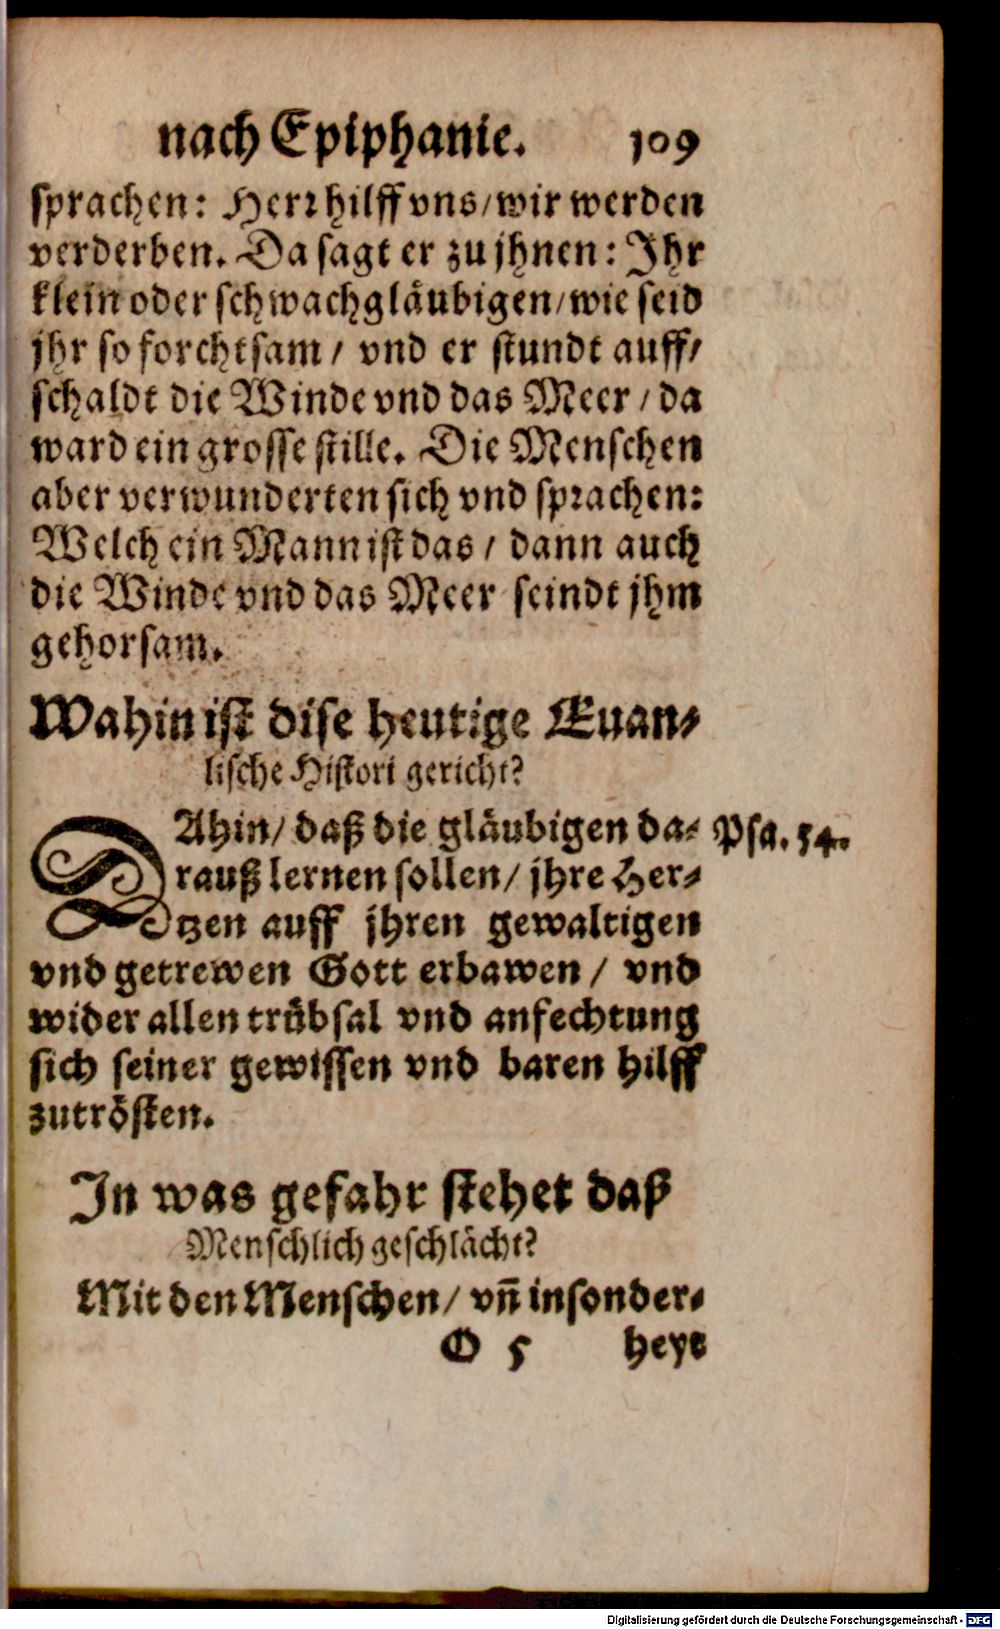 nach Epiphanie. 109
sprachen: Herr hilff vns/ wir werden
verderben. Da sagt er zu jhnen: Jhr
klein oder schwachgläubigen/ wie seid
jhr so forchtsam / vnd er stundt auff/
schaldt die Winde vnd das Meer / da
ward ein grosse stille. Die Menschen
aber verwunderten sich vnd sprachen:
Welch ein Mann ist das / dann auch
die Winde vnd das Meer seindt jhm
gehorsam.
Wahin ist dise heutige Euan⸗
lische Histori gericht?
DAhin/ daß die gläubigen da⸗ Psa. 54.
rauß lernen sollen/ jhre Her⸗
tzen auff jhren gewaltigen
vnd getrewen Gott erbawen / vnd
wider allen trübsal vnd anfechtung
sich seiner gewissen vnd baren hilff
zutrösten.
Jn was gefahr stehet daß
Menschlich geschlächt?
Mit den Menschen/ vñ insonder⸗
O 5 heyt
Digitalisierung gefördert durch die Deutsche Forschungsgemeinschaft - DFG